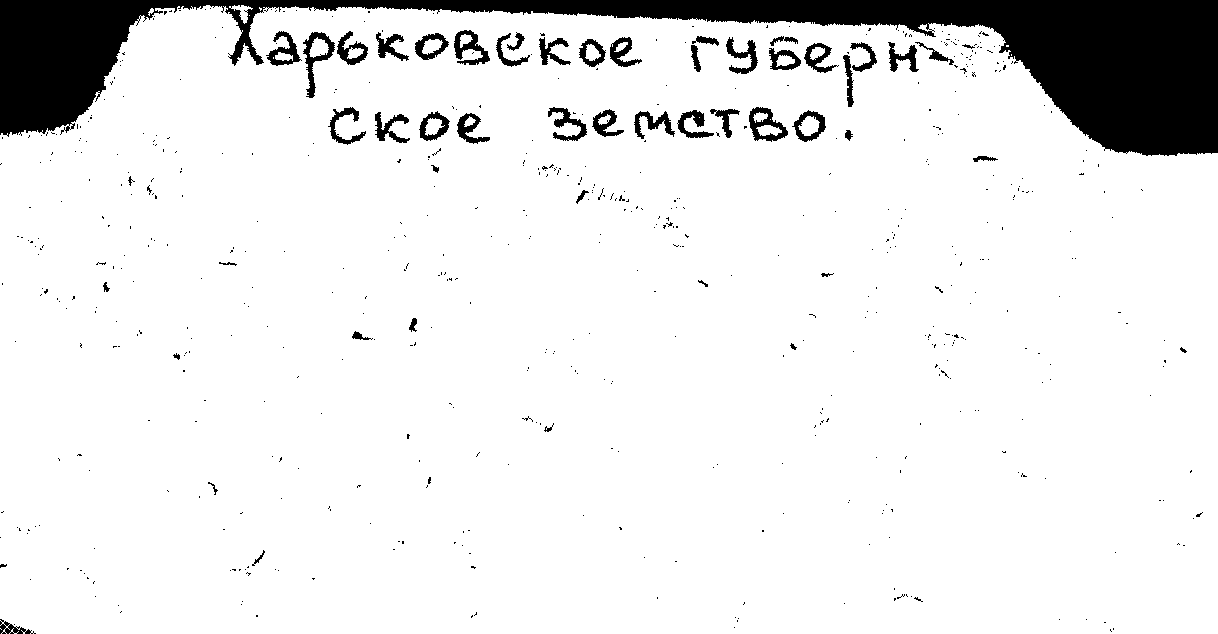 Харьковское губерн-
ское земство.